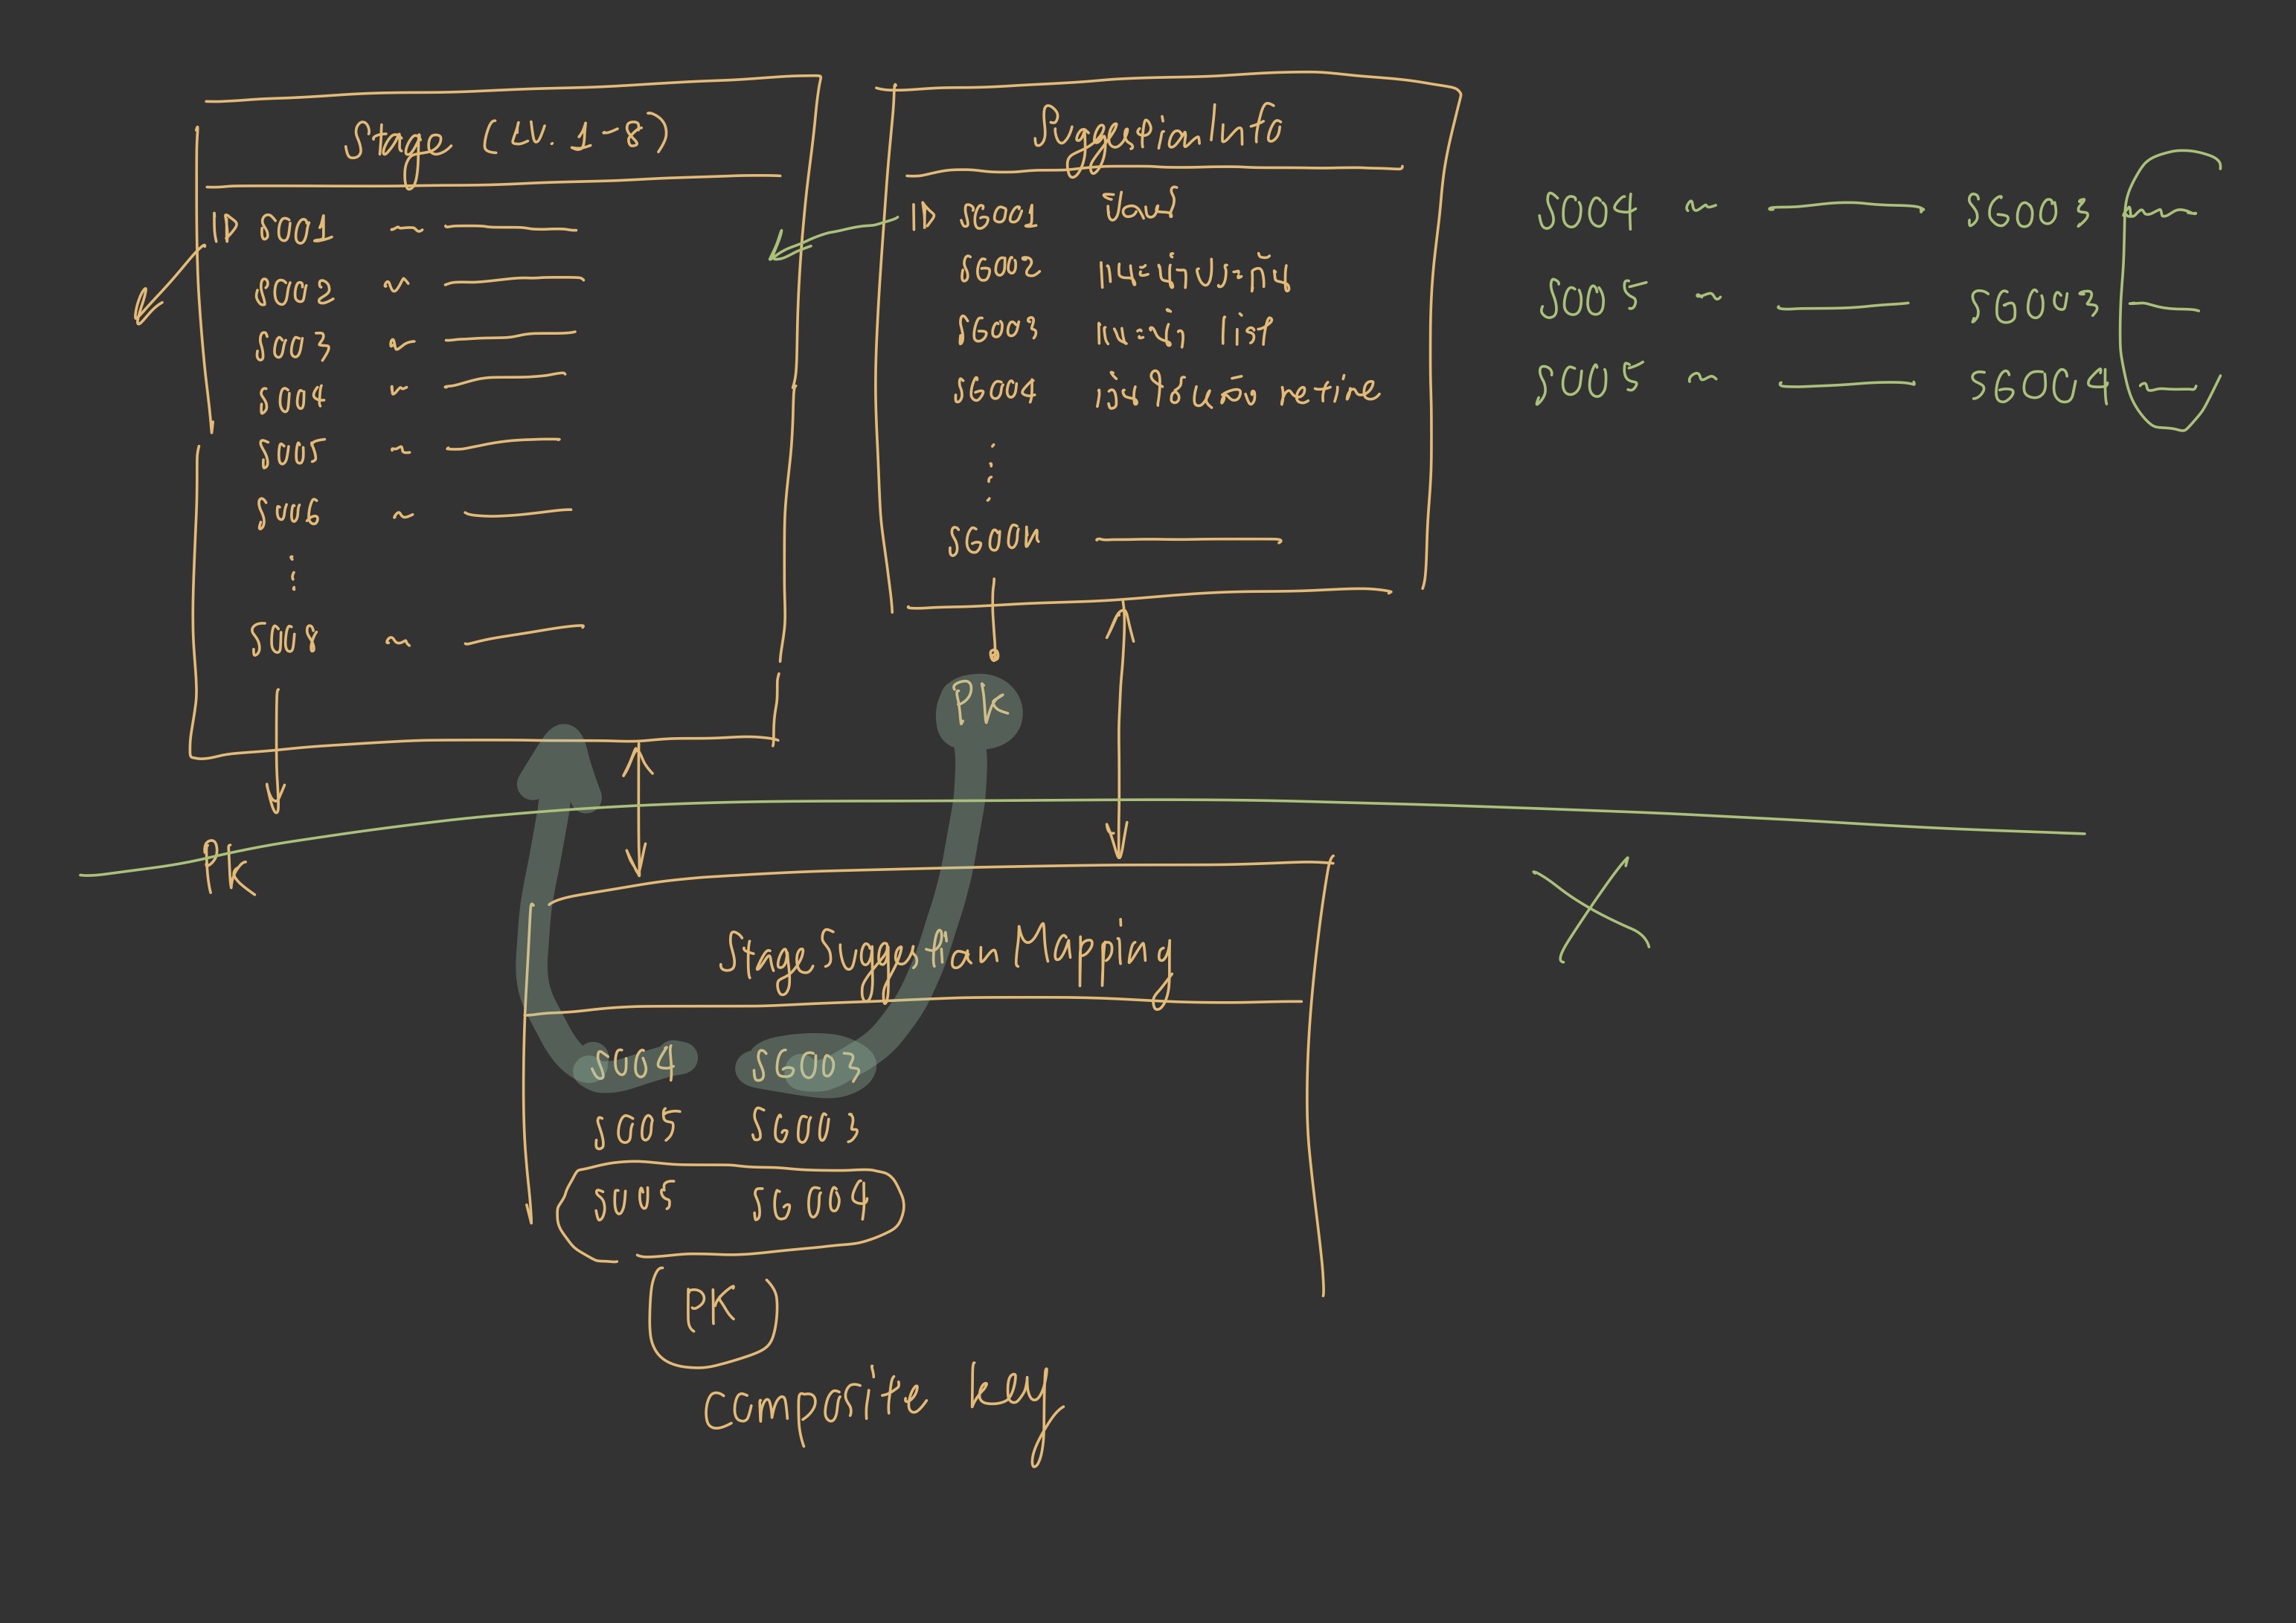 Stage (LV. 1-8)
ID S001 ~
S002 ~
S003 ~
S004 ~
S005 ~
S006 ~
S008 ~
PK
SuggestionInfo
ID SG001
SG002
SG003 list
SG004 retire
SG00n
PK
S004 ~ SG003
S005 ~ SG003
S005 ~ SG004
StageSuggestionMapping
S004 SG003
S005 SG003
S005 SG004
PK
composite key